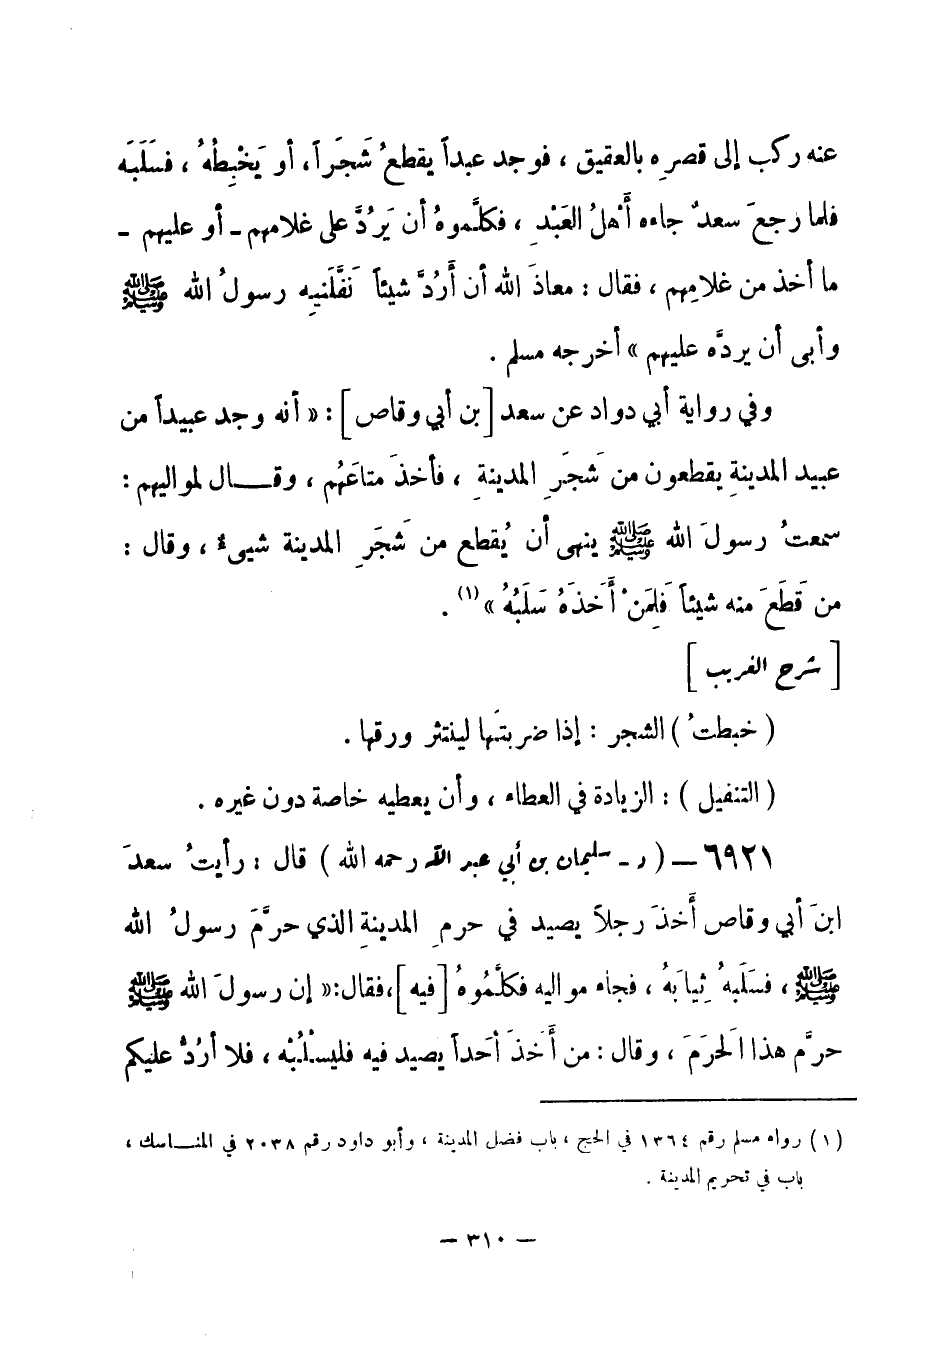 عنه ركب إلى قصرِه بالعقيق ، فوجد عبداً يقطعُ شَجَراً، أو يَخْبِطُهُ ، فسَلَبَه
فلما رجعَ سعدٌ جاءه أَهلُ العَبْدِ ، فكلَّموهُ أن يَرُدَّ على غلامهم ـ أو عليهم ـ
ما أخذ من غلامِهم ، فقال : معاذَ الله أن أَرُدَّ شيئاً نَفَّلَنيهِ رسولُ الله ﷺ
وأبى أن يردَّه عليهم » أخرجه مسلم .
وفي رواية أبي دواد عن سعد [بن أبي وقاص] : « أنه وجد عبيداً من
عبيد المدينةِ يقطعون من شَجَرِ المدينةِ ، فأخذَ متاعَهُم ، وقـــال لمواليهم :
سمعتُ رسولَ الله ﷺ ينهى أن يُقطع من شَجَرِ المدينة شيىءٌ ، وقال :
من قَطَعَ منه شيئاً فَلِمَنْ أَخَذَهُ سَلَبُهُ » (١) .
[ شرح الغريب ]
( خبطتُ ) الشجر : إذا ضربتَها لينتثر ورقها .
( التنفيل ) : الزيادة في العطاء ، وأن يعطيه خاصة دون غيره .
٦٩٢١ — ( د - سليمان بن أبي عبد الله رحمه الله ) قال : رأيتُ سعدَ
ابنَ أبي وقاص أَخذَ رجلاً يصيد في حرمِ المدينةِ الذي حرَّمَ رسولُ الله
ﷺ ، فسَلَبهُ ثِيابَهُ ، فجاء مواليه فكلَّمُوهُ [فيه]،فقال:« إن رسولَ الله ﷺ
حرَّم هذا الَحرَمَ ، وقال : من أَخَذَ أَحداً يصيد فيه فليسْلُبْه ، فلا أرُدُّ عليكم
(١) رواه مسلم رقم ١٣٦٤ في الحج ، باب فضل المدينة ، وأبو داود رقم ٢٠٣٨ في المنــاسك ،
باب في تحريم المدينة .
— ٣١٠ —